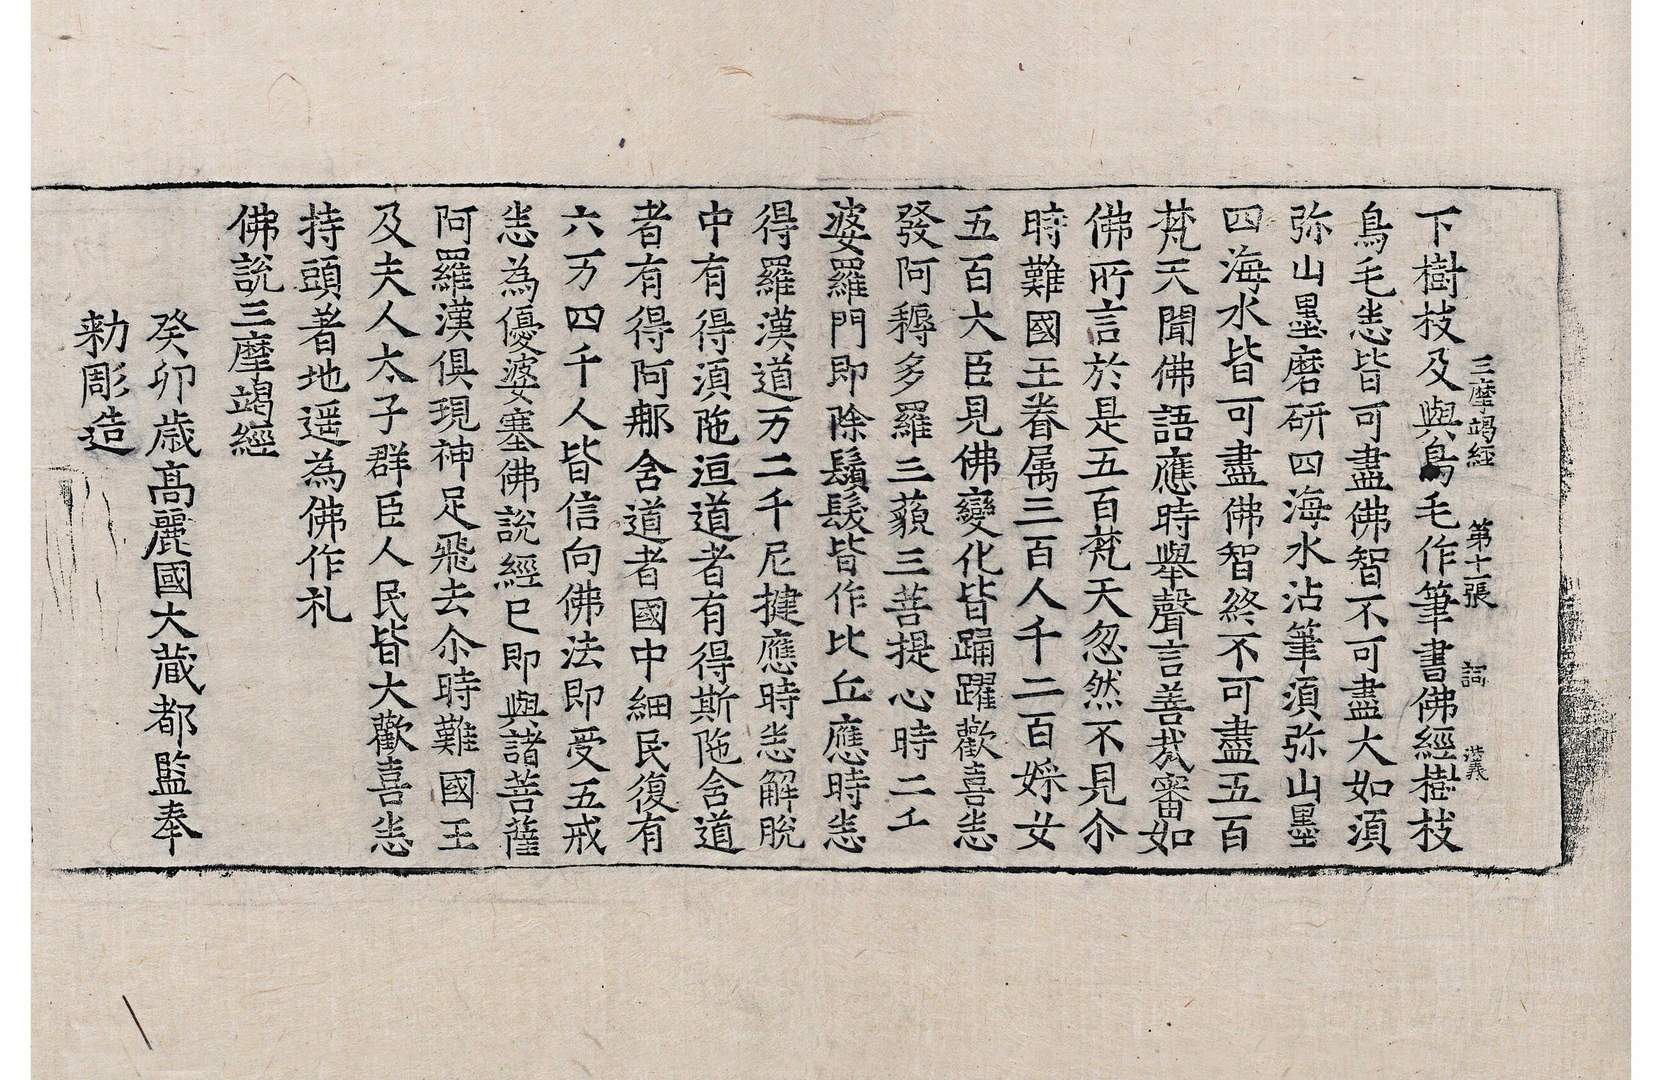 三摩竭經 第十一張 詞
下樹枝及與鳥毛作筆書佛經樹枝
鳥毛悉皆可盡佛智不可盡大如湏
弥山墨磨研四海水沾筆湏弥山墨
四海水皆可盡佛智終不可盡五百
梵天聞佛語應時舉聲言善哉審如
佛所言於是五百梵天忽然不見尒
時難國王眷属三百人千二百婇女
五百大臣見佛變化皆踊躍歡喜悉
發阿耨多羅三藐三菩提心時二
婆羅門即除鬚髮皆作比丘應時悉
得羅漢道万二千尼揵應時悉解脫
中有得湏陁洹道者有得斯陁含道
者有得阿那含道者國中細民復有
六万四千人皆信向佛法即受五戒
悉為優婆塞佛說經已即與諸菩薩
阿羅漢俱現神足飛去尒時難國王
及夫人太子群臣人民皆大歡喜悉
持頭著地遥為佛作礼
佛說三摩竭經
癸卯歳高麗國大藏都監奉
勑彫造